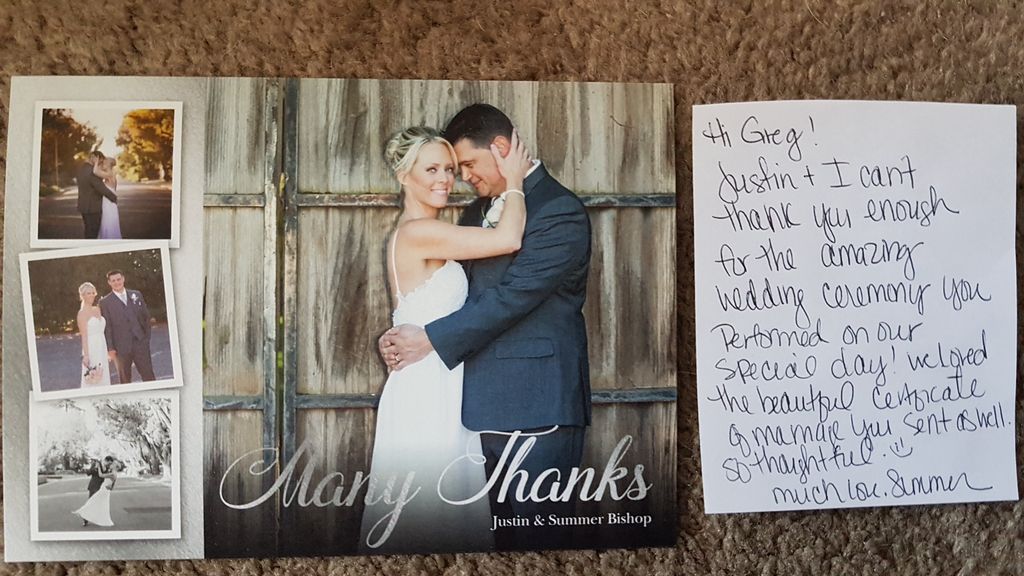 Many Thanks
Justin & Summer Bishop
Hi Greg!
Justin + I can't
thank you enough
for the amazing
wedding ceremony you
performed on our
special day! we loved
the beautiful certificate
of marriage you sent as well.
so thoughtful.
much love. Summer